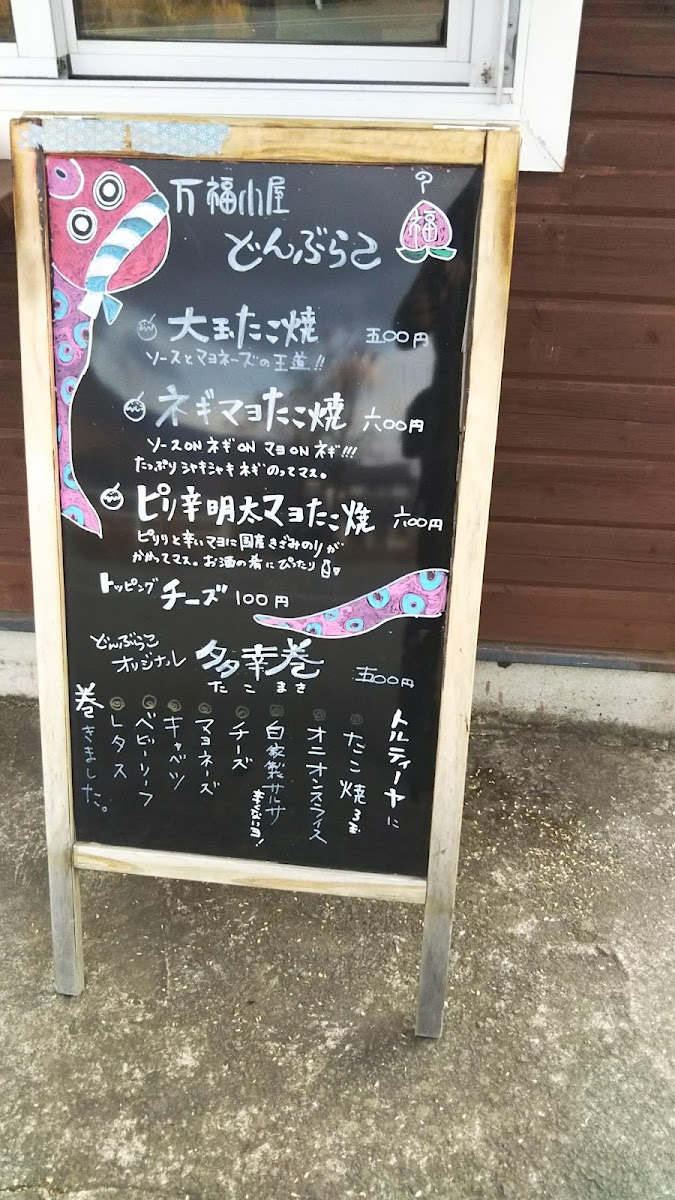 万福小屋
どんぶらこ
の
福
大玉たこ焼 五00円
ソースとマヨネーズの王道!!
ネギマヨたこ焼 六00円
ソースON ネギON マヨON ネギ!!!
たっぷりシャキシャキネギのってマス。
ピリ辛明太マヨたこ焼 六00円
ピリリと辛いマヨに国産きざみのりが
かかってマス。お酒の肴にぴったり
トッピング チーズ 100円
どんぶらこ
オリジナル 多幸巻 五00円
たこまき
トルティーヤに
たこ焼3玉
オニオンスライス
自家製サルサ 辛くないヨ!
チーズ
マヨネーズ
キャベツ
ベビーリーフ
レタス
巻きました。